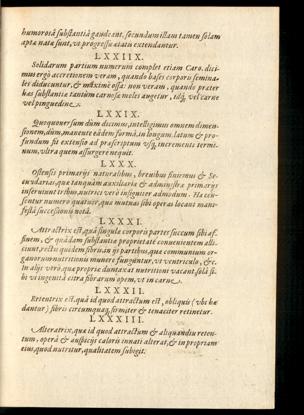 humorosa substantia gaudent, secundum illam tamen solam
apta nata sunt, ut progressu ætatis extendantur.
LXXIIX.
Solidarum partium numerum complet etiam Caro. dici-
mus ergò accretionem veram, quando bases corporis semina-
les diducuntur, & maximè ossa: non veram, quando præter
has substantia tantùm carnosa moles augetur, idq́, vel carne
vel pinguedine.
LXXIX.
Quoquoversum dùm dicimus, intelligimus omnem dimen-
sionem, dùm, manente eâdem formâ, in longum, latum & pro-
fundum fit extensio ad præscriptum usq́, incrementi termi-
num, ultra quem assurgere nequit.
LXXX.
Ostensis primarijs naturalibus, brevibus finiemus & Se-
cundarias, quæ tanquam auxiliaria & administra primarijs
inserviunt tribus, nutrici verò insigniter admodum. Hæ cen-
sentur numero quatuor, quæ mutuas sibi operas locant mani-
festâ successionis notâ.
LXXXI.
Attractrix est, quâ singulæ corporis partes succum sibi af-
finem, & quâdam substantiæ proprietate convenientem alli-
ciunt, rectis quidem fibris in ijs partibus, quæ communium or-
ganorum nutritionis munere funguntur, ut ventriculo, &c.
In alijs verò, quæ propriæ duntaxat nutritioni vacant, solâ si-
bi vi ingenitâ citra fibrarum opem, ut in carne.
LXXXII.
Retentrix est, quâ id quod attractum est, obliquis (ubi hæ
dantur) fibris circumquaq́, firmiter & tenaciter retinetur.
LXXXIII.
Alteratrix, quæ id quod attractum & aliquandiu reten-
tum, operâ & auspicijs caloris innati alterat, & in propriam
eius, quod nutritur, qualitatem subigit.